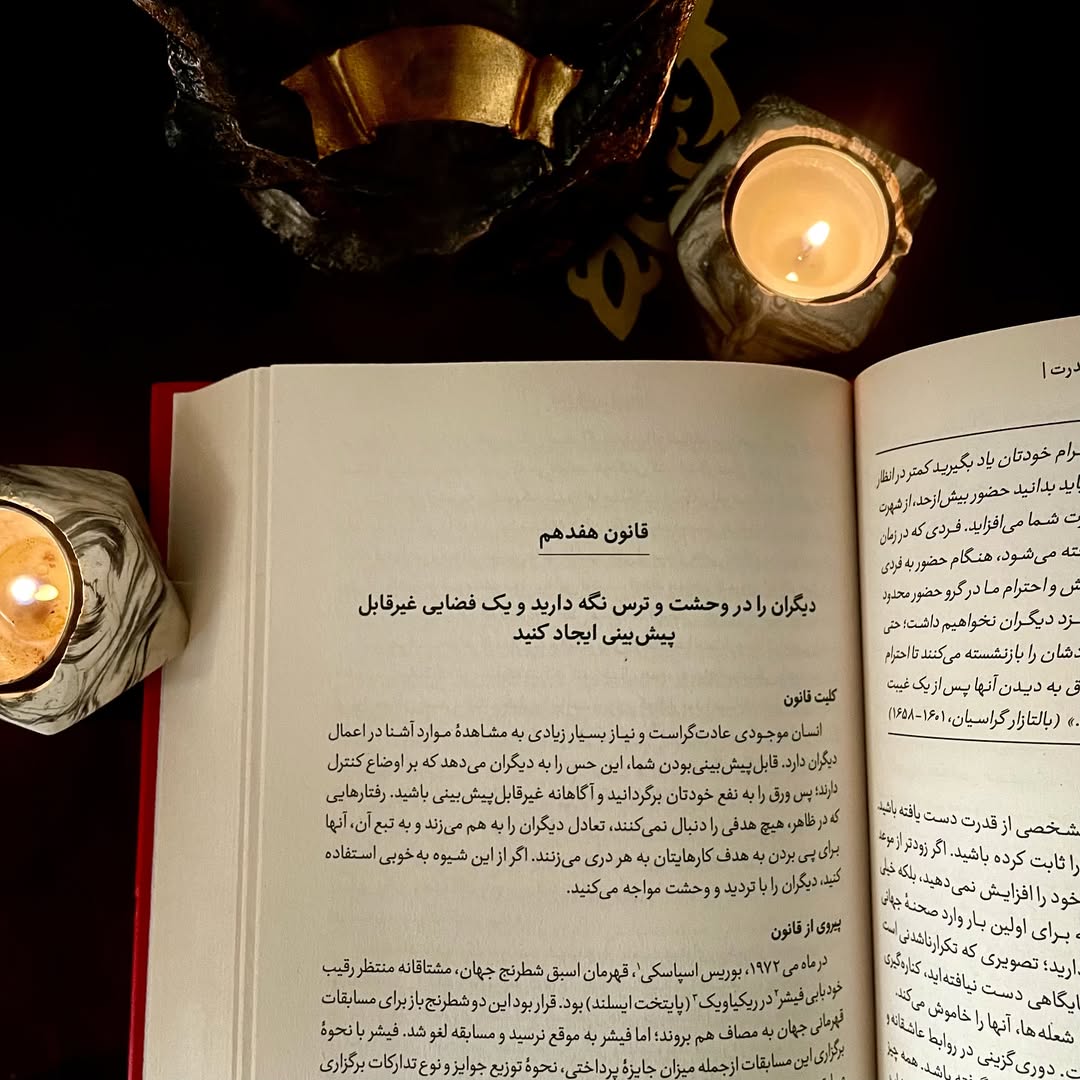 درت |
ـرام خودتان یاد بگیرید کمتر در انظار
باید بدانید حضور بیش‌ازحد، از شهرت
شما می‌افزاید. فردی که در زمان
می‌شود، هنگام حضور به فردی
و احترام ما در گرو حضور محدود
دیگران نخواهیم داشت؛ حتی
را بازنشسته می‌کنند تا احترام
به دیدن آنها پس از یک غیبت
.» (بالتازار گراسیان، ۱۶۰۱-۱۶۵۸)
شخصی از قدرت دست یافته باشید.
را ثابت کرده باشید. اگر زودتر از موعد
خود را افزایش نمی‌دهید، بلکه خیلی
برای اولین بار وارد صحنهٔ جهانی
دارید؛ تصویری که تکرارناشدنی است
جایگاهی دست نیافته‌اید، کناره‌گیری
شعله‌ها، آنها را خاموش می‌کند.
دوری‌گزینی در روابط عاشقانه و
باشد. همه چیز
قانون هفدهم
دیگران را در وحشت و ترس نگه دارید و یک فضایی غیرقابل
پیش‌بینی ایجاد کنید
کلیت قانون
انسان موجودی عادت‌گراست و نیاز بسیار زیادی به مشاهدهٔ موارد آشنا در اعمال
دیگران دارد. قابل‌پیش‌بینی‌بودن شما، این حس را به دیگران می‌دهد که بر اوضاع کنترل
دارند؛ پس ورق را به نفع خودتان برگردانید و آگاهانه غیرقابل‌پیش‌بینی باشید. رفتارهایی
که در ظاهر، هیچ هدفی را دنبال نمی‌کنند، تعادل دیگران را به هم می‌زند و به تبع آن، آنها
برای پی بردن به هدف کارهایتان به هر دری می‌زنند. اگر از این شیوه به خوبی استفاده
کنید، دیگران را با تردید و وحشت مواجه می‌کنید.
پیروی از قانون
در ماه می ۱۹۷۲، بوریس اسپاسکی۱، قهرمان اسبق شطرنج جهان، مشتاقانه منتظر رقیب
خود بابی فیشر۲ در ریکیاویک۳ (پایتخت ایسلند) بود. قرار بود این دو شطرنج‌باز برای مسابقات
قهرمانی جهان به مصاف هم بروند؛ اما فیشر به موقع نرسید و مسابقه لغو شد. فیشر با نحوهٔ
برگزاری این مسابقات ازجمله میزان جایزهٔ پرداختی، نحوهٔ توزیع جوایز و نوع تدارکات برگزاری